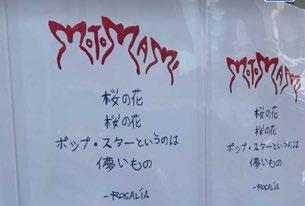 MOTOMAMI
桜の花
桜の花
ポップ・スターというのは
儚いもの
-ROSALÍA
MOTOMAMI
桜の花
桜の花
ポップ・スターというのは
儚いもの
-ROSALÍA